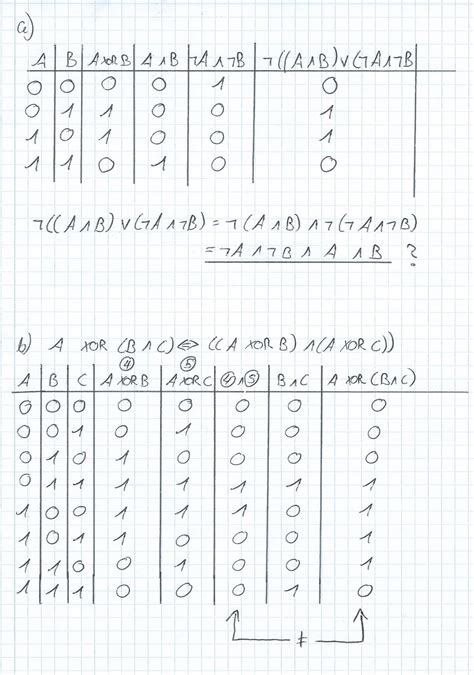 a)
A B A XOR B A ∧ B ¬A ∧ ¬B ¬((A ∧ B) ∨ (¬A ∧ ¬B
0 0 0 0 1 0
0 1 1 0 0 1
1 0 1 0 0 1
1 1 0 1 0 0
¬((A ∧ B) ∨ (¬A ∧ ¬B) = ¬(A ∧ B) ∧ ¬(¬A ∧ ¬B)
= ¬A ∧ ¬B ∧ A ∧ B ?
b) A XOR (B ∧ C) ⇔ ((A XOR B) ∧ (A XOR C))
④ ⑤
A B C A XOR B A XOR C ④ ∧ ⑤ B ∧ C A XOR (B ∧ C)
0 0 0 0 0 0 0 0
0 0 1 0 1 0 0 0
0 1 0 1 0 0 0 0
0 1 1 1 1 1 1 1
1 0 0 1 1 1 0 1
1 0 1 1 0 0 0 1
1 1 0 0 1 0 0 1
1 1 1 0 0 0 1 0
≠